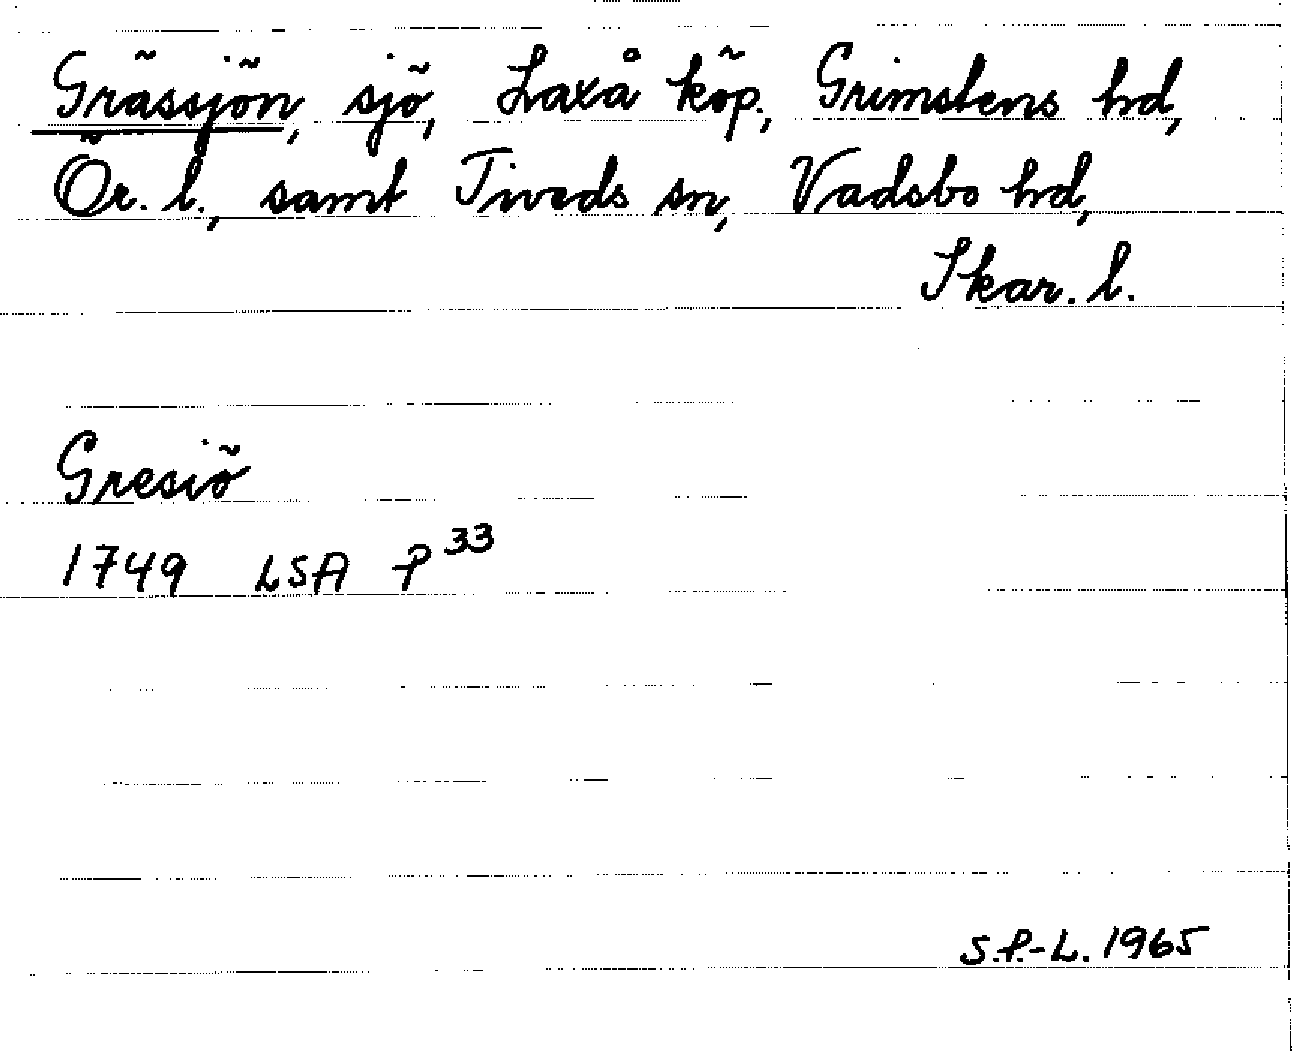 Grässjön, sjö, Laxå köp., Grimstens hd,
Ör. l., samt Tiveds sn, Vadsbo hd,
Skar. l.
Gresiö
1749 LSA P 33
S.P.-L. 1965